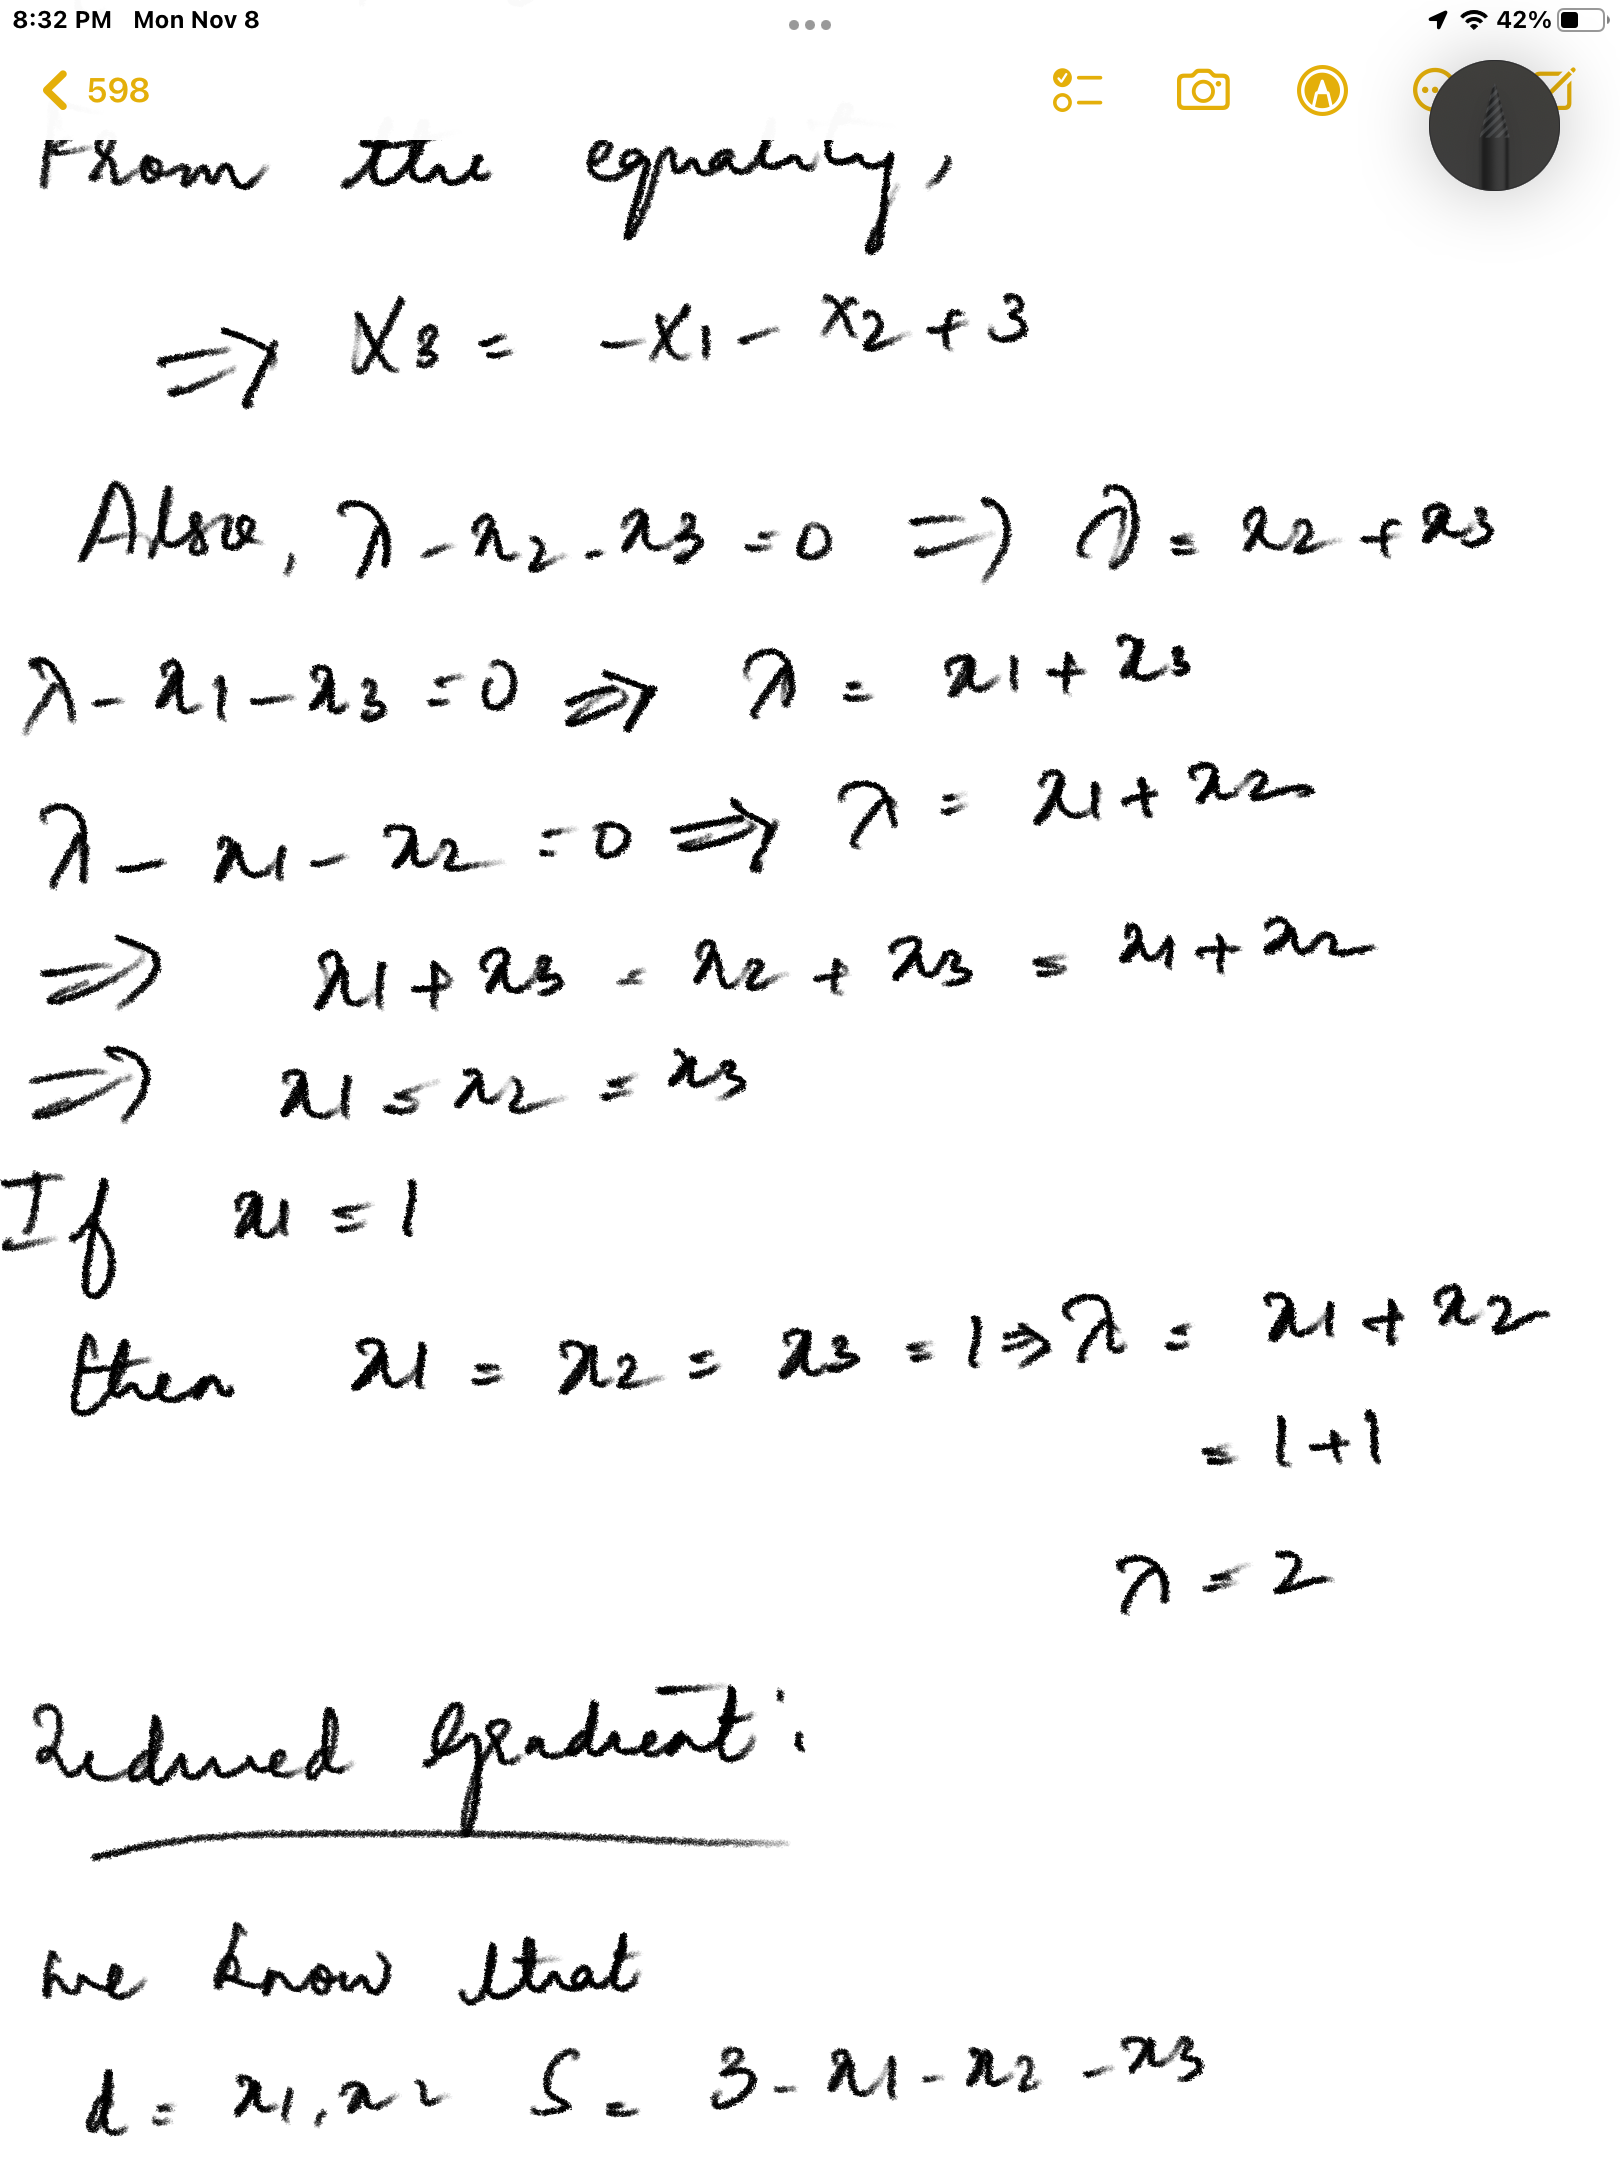 8:32 PM Mon Nov 8 42%
598
From the equality,
⇒ X3 = -X1 - X2 + 3
Also, λ - x2 - x3 = 0 ⇒ λ = x2 + x3
λ - x1 - x3 = 0 ⇒ λ = x1 + x3
λ - x1 - x2 = 0 ⇒ λ = x1 + x2
⇒ x1 + x3 = x2 + x3 = x1 + x2
⇒ x1 = x2 = x3
If x1 = 1
then x1 = x2 = x3 = 1 ⇒ λ = x1 + x2
= 1 + 1
λ = 2
Reduced Gradient:
we know that
d = x1, x2 S = 3 - x1 - x2 - x3